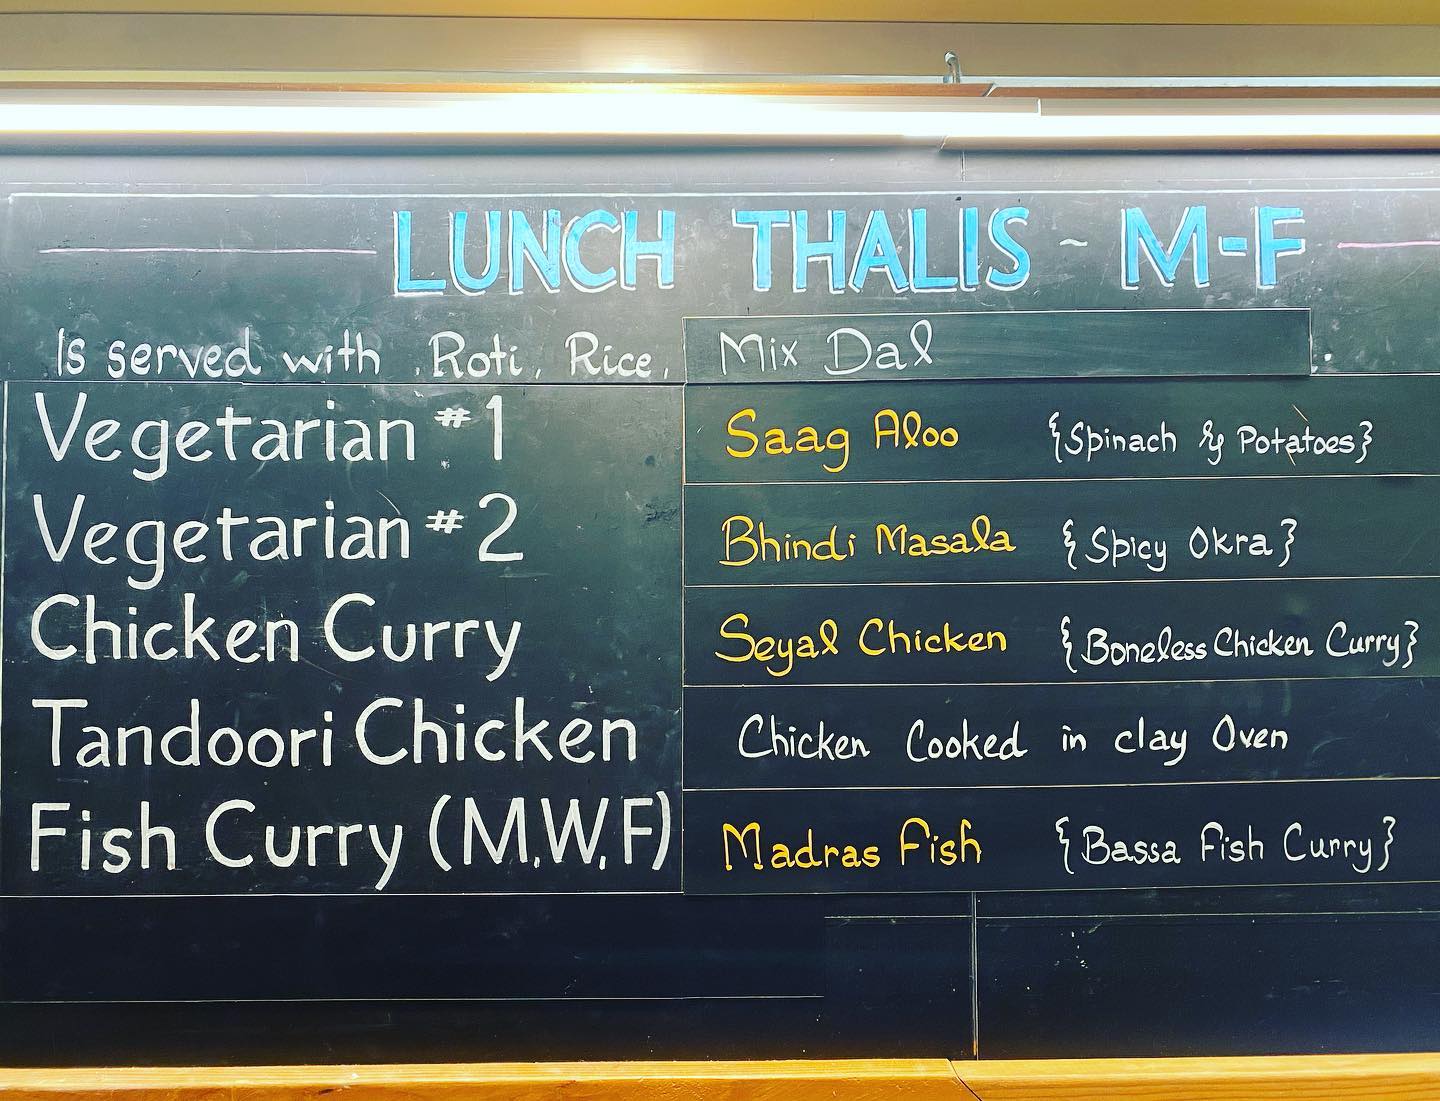 LUNCH THALIS ~ M-F
Is served with Roti, Rice, Mix Dal.
Vegetarian #1 Saag Aloo {Spinach & Potatoes}
Vegetarian #2 Bhindi Masala {Spicy Okra}
Chicken Curry Seyal Chicken {Boneless Chicken Curry}
Tandoori Chicken Chicken Cooked in clay Oven
Fish Curry (M,W,F) Madras Fish {Bassa Fish Curry}